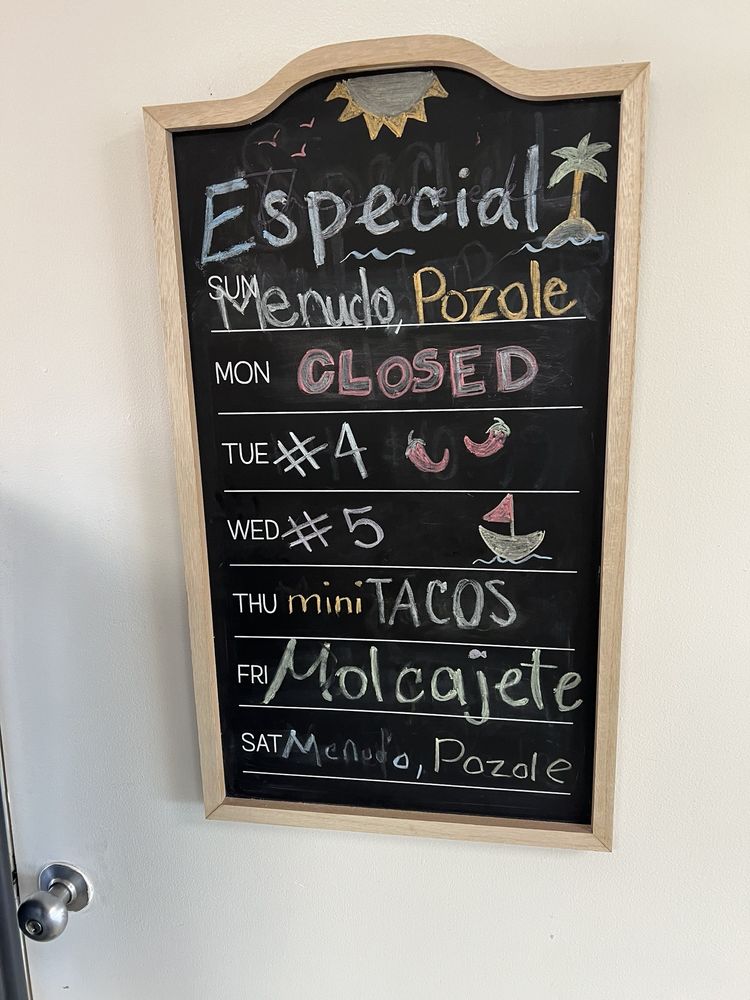 Especial
SUN Menudo, Pozole
MON CLOSED
TUE #4
WED #5
THU mini TACOS
FRI Molcajete
SAT Menudo, Pozole